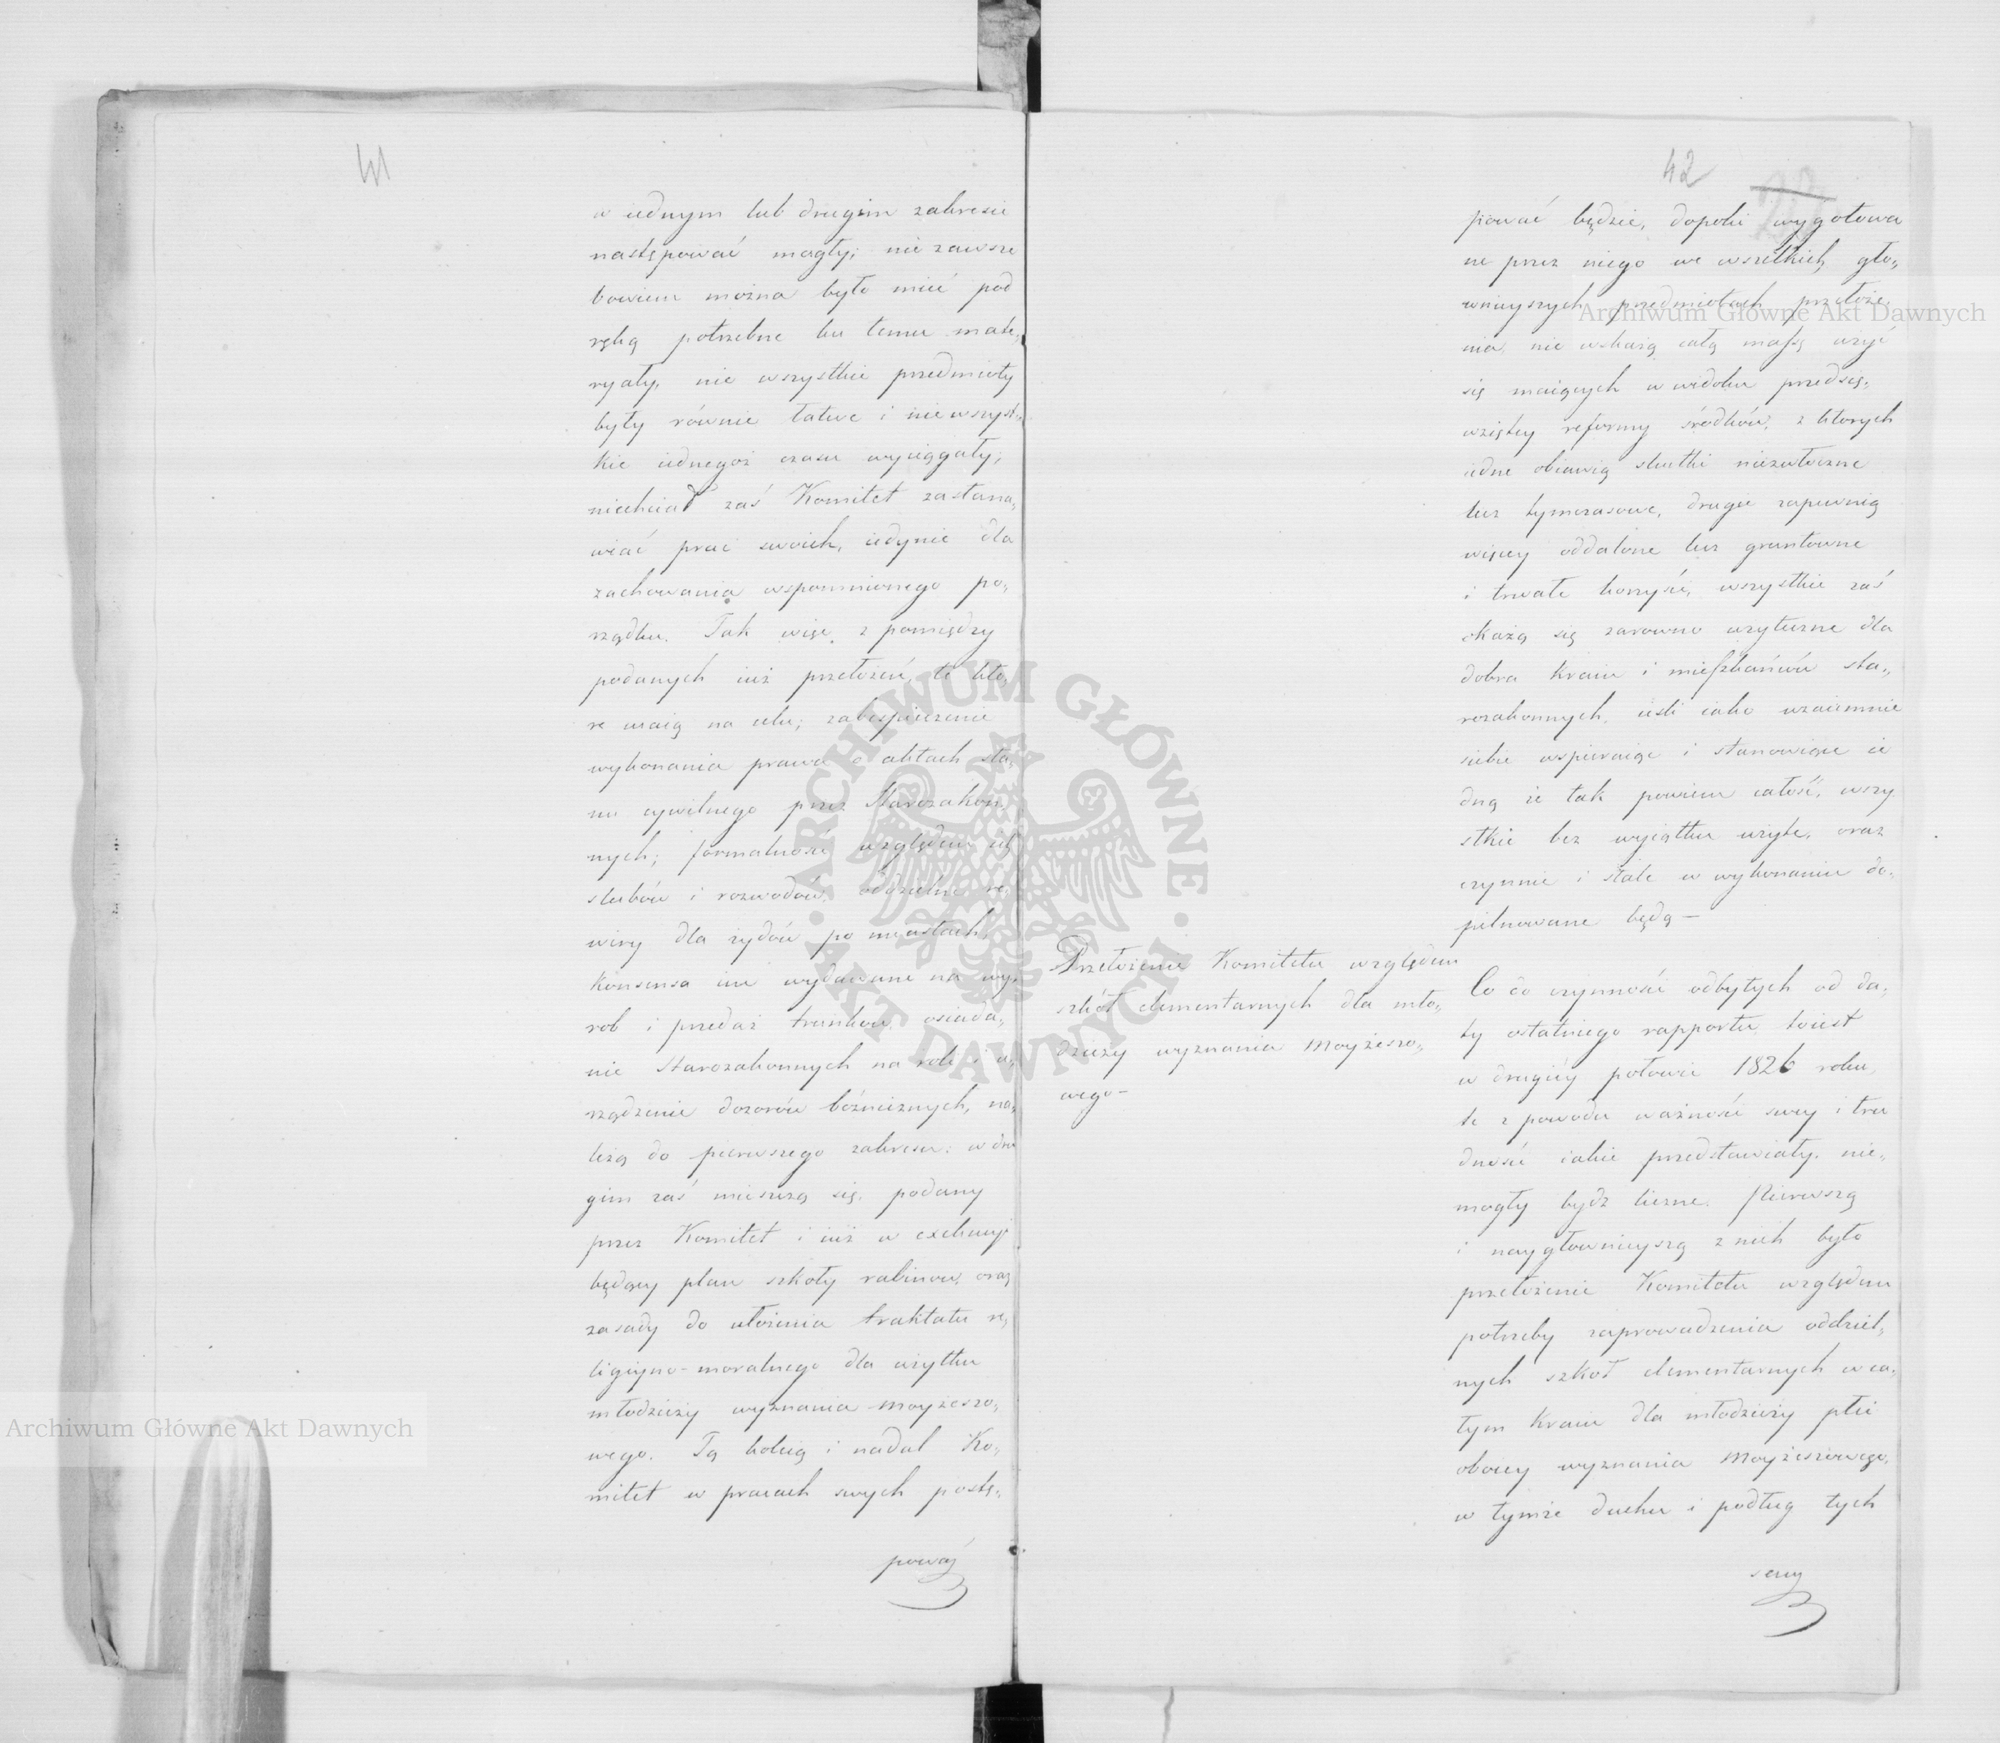 41
w iednym lub drugim zakresie
następować mogły; nie zawsze
bowiem można było mieć pod
ręką potrzebne ku temu mate,,
ryały, nie wszystkie przedmioty
były równie łatwe i nie wszyst,,
kie iednegoż czasu wyciągały;
niechciał zaś Komitet zastana,,
wiać prac swoich, iedynie dla
zachowania wspomnionego po,,
rządku. Tak więc z pomiędzy
podanych iuż przełożeń, te któ,,
re maią na celu; zabespieczenie
wykonania prawa o aktach sta,,
nu cywilnego przez Starozakon,,
nych; formalność względem ich
slubów i rozwodów, oddzielne re,,
wiry dla żydów po miastach,
konsensa im wydawane na wy,,
rob i przedaż trunków, osiada,,
nie Starozakonnych na roli i u,,
rządzenie dozorów bóżniczych, na,,
leżą do pierwszego zakresu; w dru
gim zaś mieszczą się, podany
przez Komitet i iuż w exekucyi
będący plan szkoły rabinów, oraz
zasady do ułożenia traktatu re,,
ligiyno-moralnego dla użytku
młodzieży wyznania moyżeszo,,
wego. Tą koleią i nadal Ko,,
mitet w pracach swych postę,,
pować
42
pować będzie, dopóki wygotowa
ne przez niego we wszelkich głó,,
wnieyszych przedmiotach przełoże,,
nia, nie wskażą całą massę użyć
się maiących w widoku przedsię,,
wziętey reformy śródków, z których
iedne obiawią skutki niezwłoczne
lecz tymczasowe, drugie zapewnią
więcey oddalone lecz gruntowne
i trwałe korzyści, wszystkie zaś
okażą się zarówno użyteczne dla
dobra Kraiu i mieszkańców sta,,
rozakonnych, ieśli iako wzaiemnie
siebie wspieraiące i stanowiące ie
dną że tak powiem całość, wszy
stkie bez wyiątku użyte, oraz
czynnie i stale w wykonaniu do,,
pilnowane będą —
Przełożenie Komitetu względem
szkół elementarnych dla mło,,
dzieży wyznania moyżeszo,,
wego —
Co do czynności odbytych od da,,
ty ostatniego rapportu, toiest
w drugiéy połowie 1826 roku,
te z powodu ważności swey i tru
dności iakie przedstawiały, nie,,
mogły bydź liczne. Pierwszą
i naygłównieyszą z nich było
przełożenie Komitetu względem
potrzeby zaprowadzenia oddziel,,
nych szkół elementarnych w ca,,
łym Kraiu dla młodzieży płci
oboiey wyznania moyżeszowego,
w tymże duchu i podług tych
Archiwum Główne Akt Dawnych
Archiwum Główne Akt Dawnych
ARCHIWUM GŁÓWNE AKT DAWNYCH